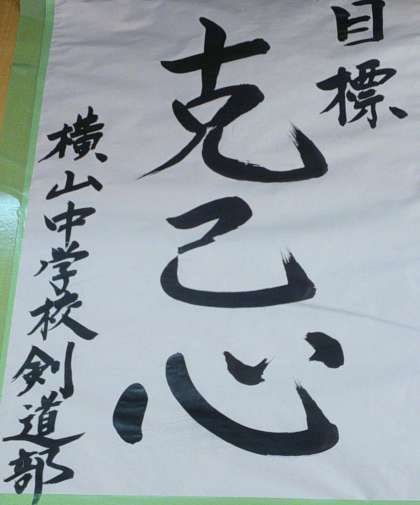 目標
克己心
横山中学校剣道部